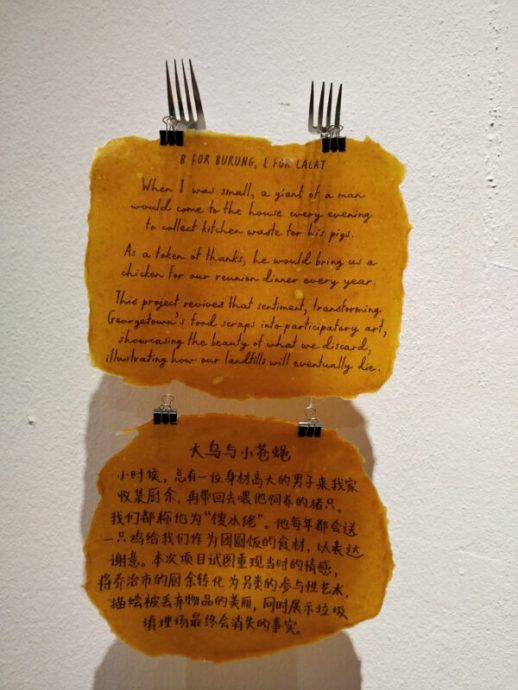 B FOR BURUNG, L FOR LALAT
When I was small, a giant of a man
would come to the house every evening
to collect kitchen waste for his pigs.
As a token of thanks, he would bring us a
chicken for our reunion dinner every year.
This project revives that sentiment, transforming
Georgetown's food scraps into participatory art,
showcasing the beauty of what we discard,
illustrating how our landfills will eventually die.
大鸟与小苍蝇
小时候，总有一位身材高大的男子来我家
收集厨余，再带回去喂他饲养的猪只。
我们都称他为“馊水佬”。他每年都会送
一只鸡给我们作为团圆饭的食材，以表达
谢意。本次项目试图重现当时的情感，
将乔治市的厨余转化为另类的参与性艺术.
描绘被丢弃物品的美丽，同时展示垃圾
填埋场最终会消失的事实.